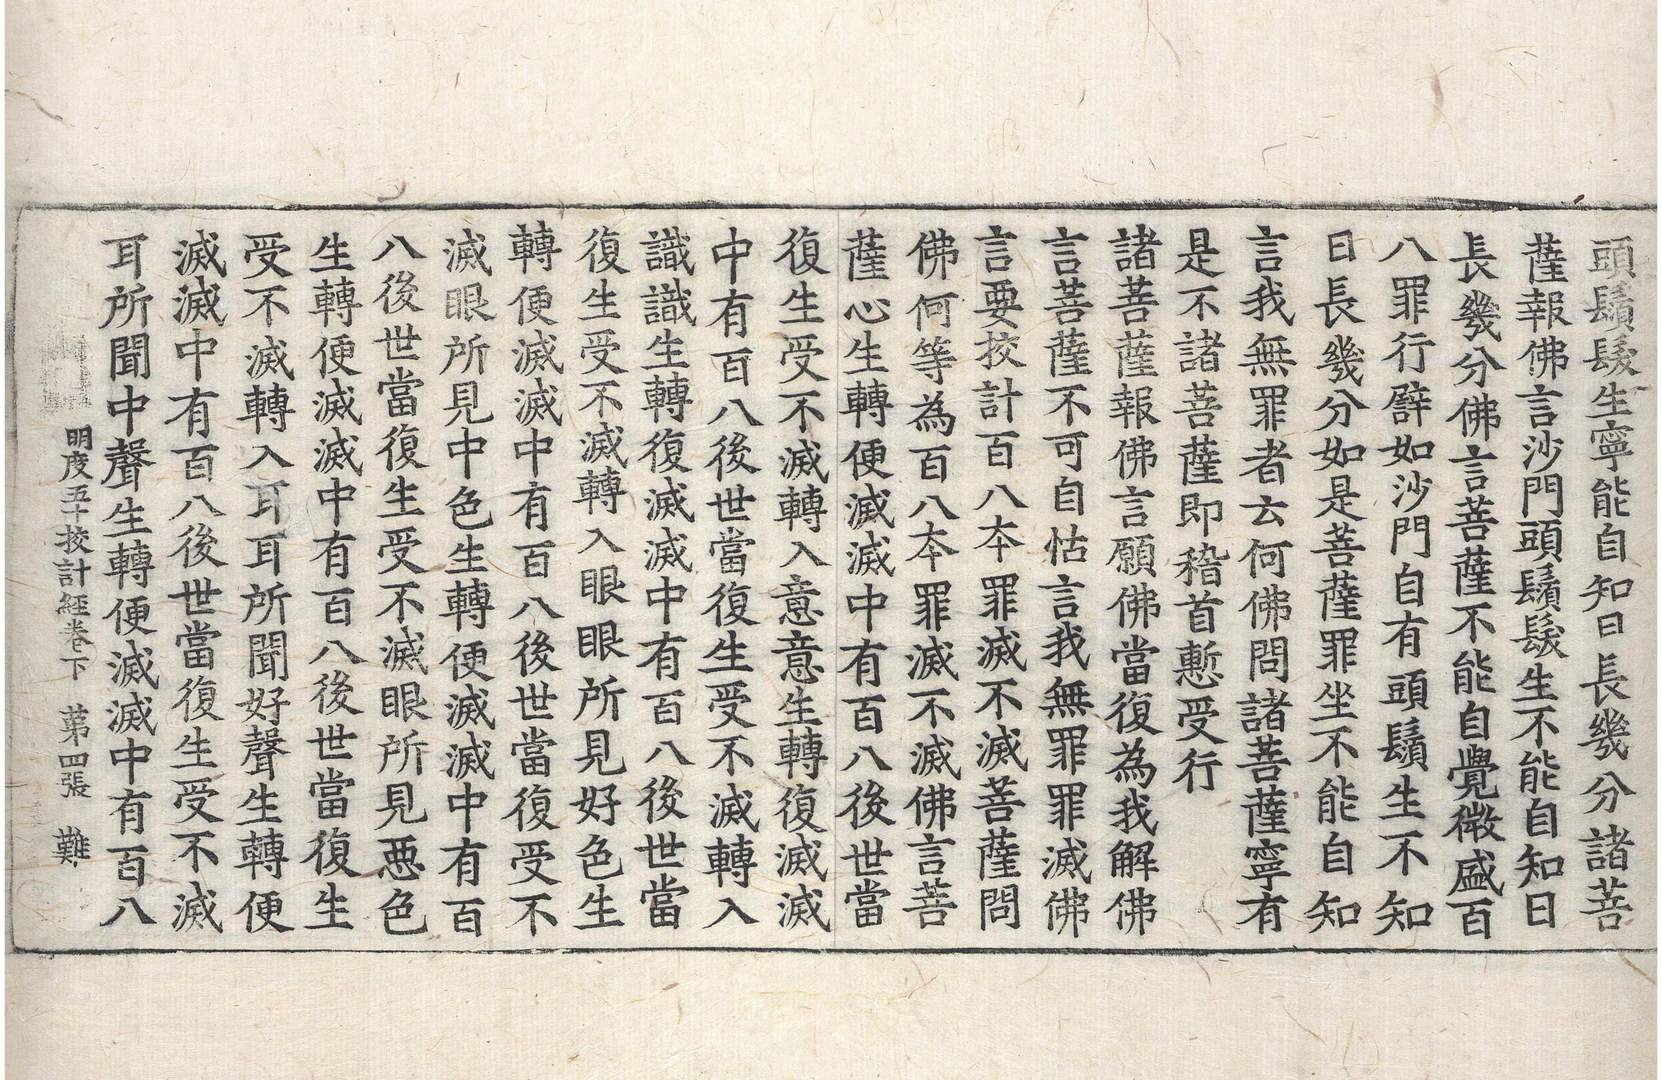 頭鬚髮生寧能自知日長幾分諸菩
薩報佛言沙門頭鬚髮生不能自知日
長幾分佛言菩薩不能自覺微盛百
八罪行譬如沙門自有頭鬚生不知
日長幾分如是菩薩罪坐不能自知
言我無罪者云何佛問諸菩薩寧有
是不諸菩薩即稽首慙受行
諸菩薩報佛言願佛當復為我解佛
言菩薩不可自怙言我無罪罪滅佛
言要挍計百八本罪滅不滅菩薩問
佛何等為百八本罪滅不滅佛言菩
薩心生轉便滅滅中有百八後世當
復生受不滅轉入意意生轉復滅滅
中有百八後世當復生受不滅轉入
識識生轉復滅滅中有百八後世當
復生受不滅轉入眼眼所見好色生
轉便滅滅中有百八後世當復受不
滅眼所見中色生轉便滅滅中有百
八後世當復生受不滅眼所見惡色
生轉便滅滅中有百八後世當復生
受不滅轉入耳耳所聞好聲生轉便
滅滅中有百八後世當復生受不滅
耳所聞中聲生轉便滅滅中有百八
明度五十挍計經卷下 第四張 難